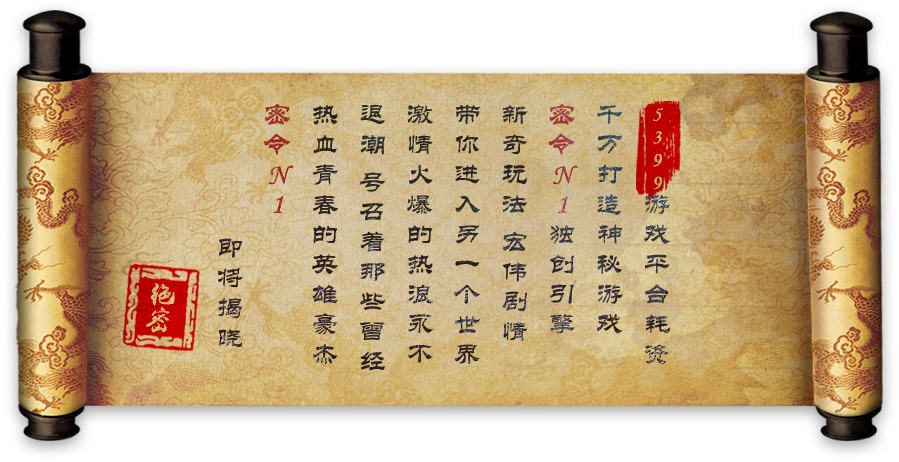 5399游戏平台耗资
千万打造神秘游戏
密令N1独创引擎
新奇玩法 宏伟剧情
带你进入另一个世界
激情火爆的热浪永不
退潮 号召着那些曾经
热血青春的英雄豪杰
密令N1
即将揭晓
绝密